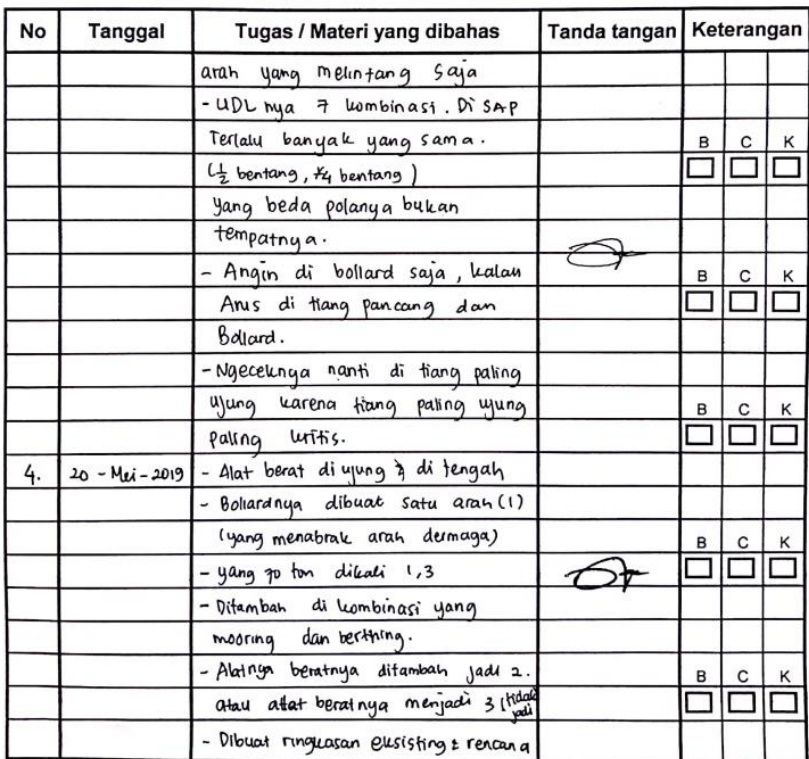 No Tanggal Tugas / Materi yang dibahas Tanda tangan Keterangan
arah yang melintang saja
- UDL nya 7 kombinasi. Di SAP
Terlalu banyak yang sama.
B C K
(½ bentang, ¼ bentang)
yang beda polanya bukan
tempatnya.
- Angin di bollard saja, kalau
B C K
Arus di tiang pancang dan
Bollard.
- Ngeceknya nanti di tiang paling
ujung karena tiang paling ujung
B C K
paling kritis.
4. 20 - Mei - 2019 - Alat berat di ujung & di tengah
- Bollardnya dibuat satu arah (1)
(yang menabrak arah dermaga)
B C K
- yang 70 ton dikali 1,3
- Ditambah di kombinasi yang
mooring dan berthing.
- Alatnya beratnya ditambah jadi 2.
B C K
atau alat beratnya menjadi 3 (tidak jadi
- Dibuat ringkasan eksisting & rencana